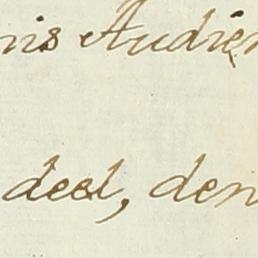 nis Audiën
deel, den